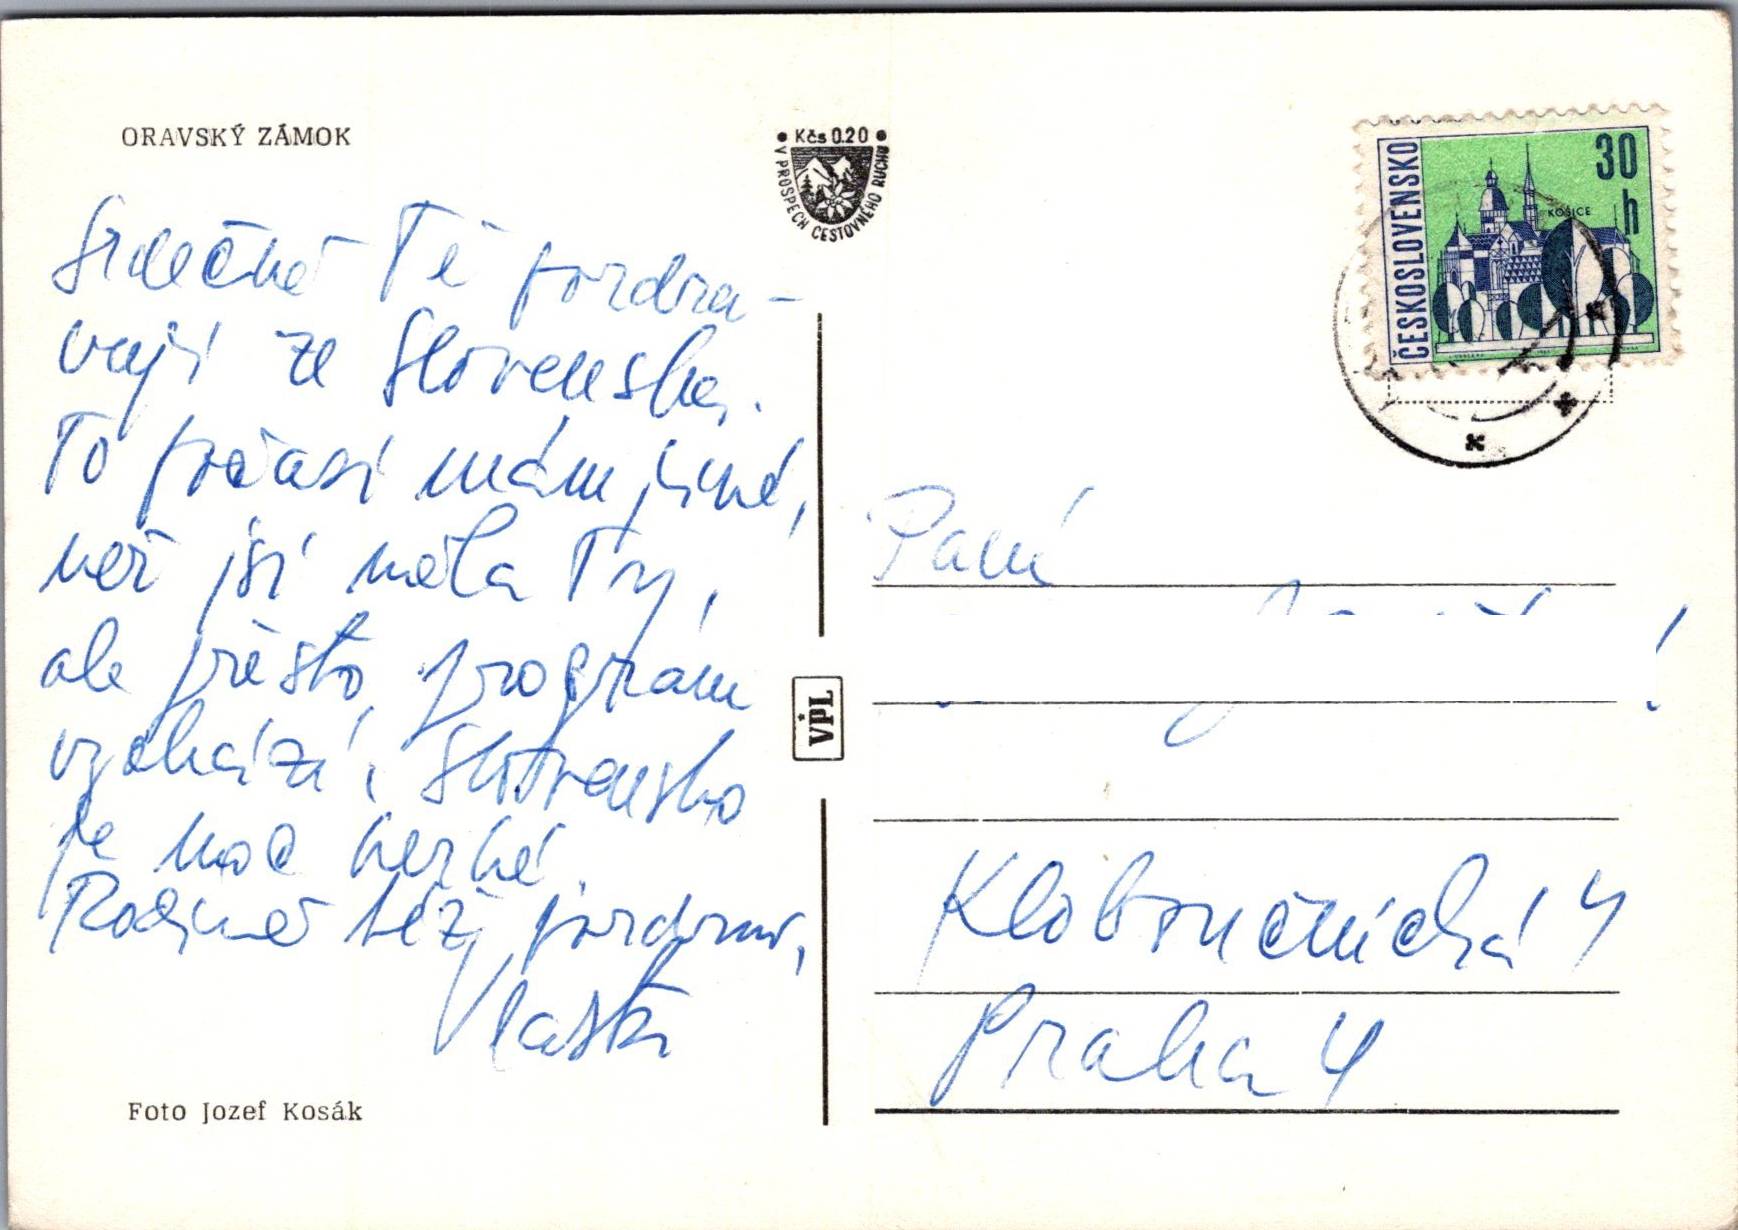 ORAVSKÝ ZÁMOK
Kčs 0.20
V PROSPECH CESTOVNÉHO RUCHU
ČESKOSLOVENSKO
30
h
KOŠICE
Srdečně Tě pozdra-
vuji ze Slovenska.
To počasí mám jiné,
než jsi měla Ty,
ale přesto program
vychází, Slovensko
je moc hezké.
Rodině též pozdrav,
Vlasta
Foto Jozef Kosák
VPL
Paní
Kloboučnická 4
Praha 4